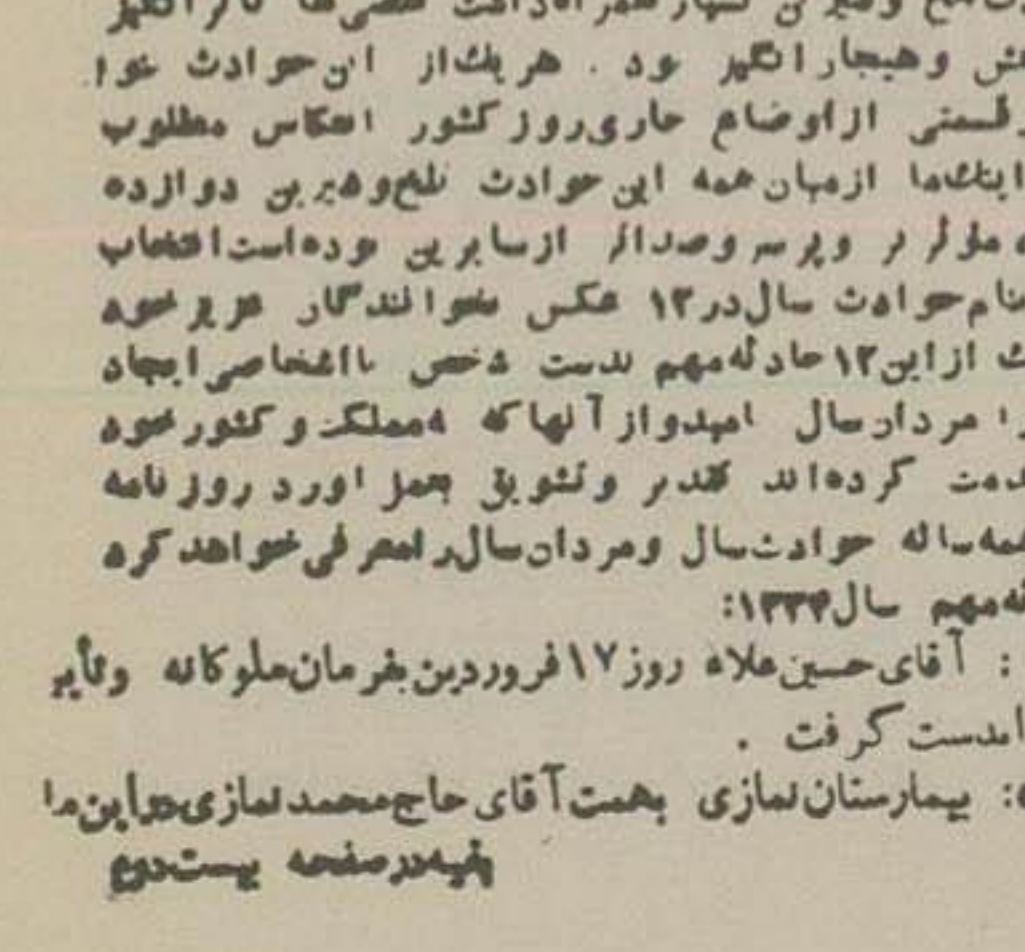 وهیجان انگیز بود . هریك از این حوادث
قسمتی از اوضاع جاری روز کشور انعکاس مطلوب
اینك ما از میان همه این حوادث تلخ و شیرین دوازده
مؤثر تر و پر سر وصداتر از سایرین بوده است انتخاب
حوادث سال در ۱۲ عکس بخوانندگان عزیز خود
از این ۱۲ حادثه مهم بدست شخص یا اشخاصی ایجاد
مردان سال نامیده و از آنها که بمملکت و کشور خود
کرده اند تقدیر و تشویق بعمل آورد روزنامه
همه ساله حوادث سال و مردان سال را معرفی خواهد کرد
مهم سال ۱۳۳۴:
: آقای حسین علاء روز ۱۷ فروردین بفرمان ملوکانه و
بدست گرفت .
: بیمارستان نمازی بهمت آقای حاج محمد نمازی در این
بقیه در صفحه بیست و دوم